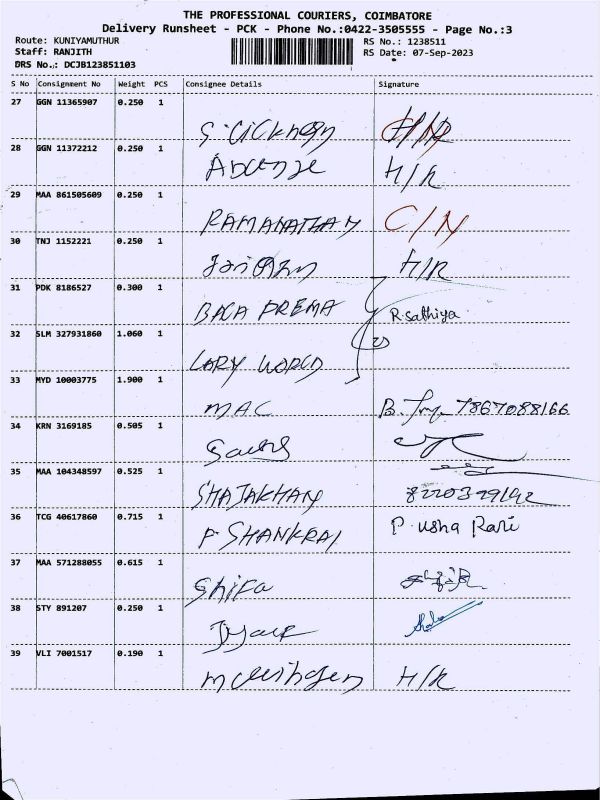 THE PROFESSIONAL COURIERS, COIMBATORE
Delivery Runsheet - PCK - Phone No.:0422-3505555 - Page No.:3
Route: KUNIYAMUTHUR
RS No.: 1238511
Staff: RANJITH
RS Date: 07-Sep-2023
DRS No.: DCJB123851103
S No Consignment No Weight PCS Consignee Details Signature
27 GGN 11365907 0.250 1
28 GGN 11372212 0.250 1
H/R
29 MAA 861505609 0.250 1
RAMANATHAN C/N
30 TNJ 1152221 0.250 1
H/R
31 PDK 8186527 0.300 1
BALA PREMA R.Sathiya
32 SLM 327931860 1.060 1
LARY WORLD
33 MYD 10003775 1.900 1
MAC B. 7867088166
34 KRN 3169185 0.505 1
35 MAA 104348597 0.525 1
SHAJAKHAN
36 TCG 40617860 0.715 1
P. usha Rani
37 MAA 571288055 0.615 1
Shifa
38 STY 891207 0.250 1
39 VLI 7001517 0.190 1
H/R